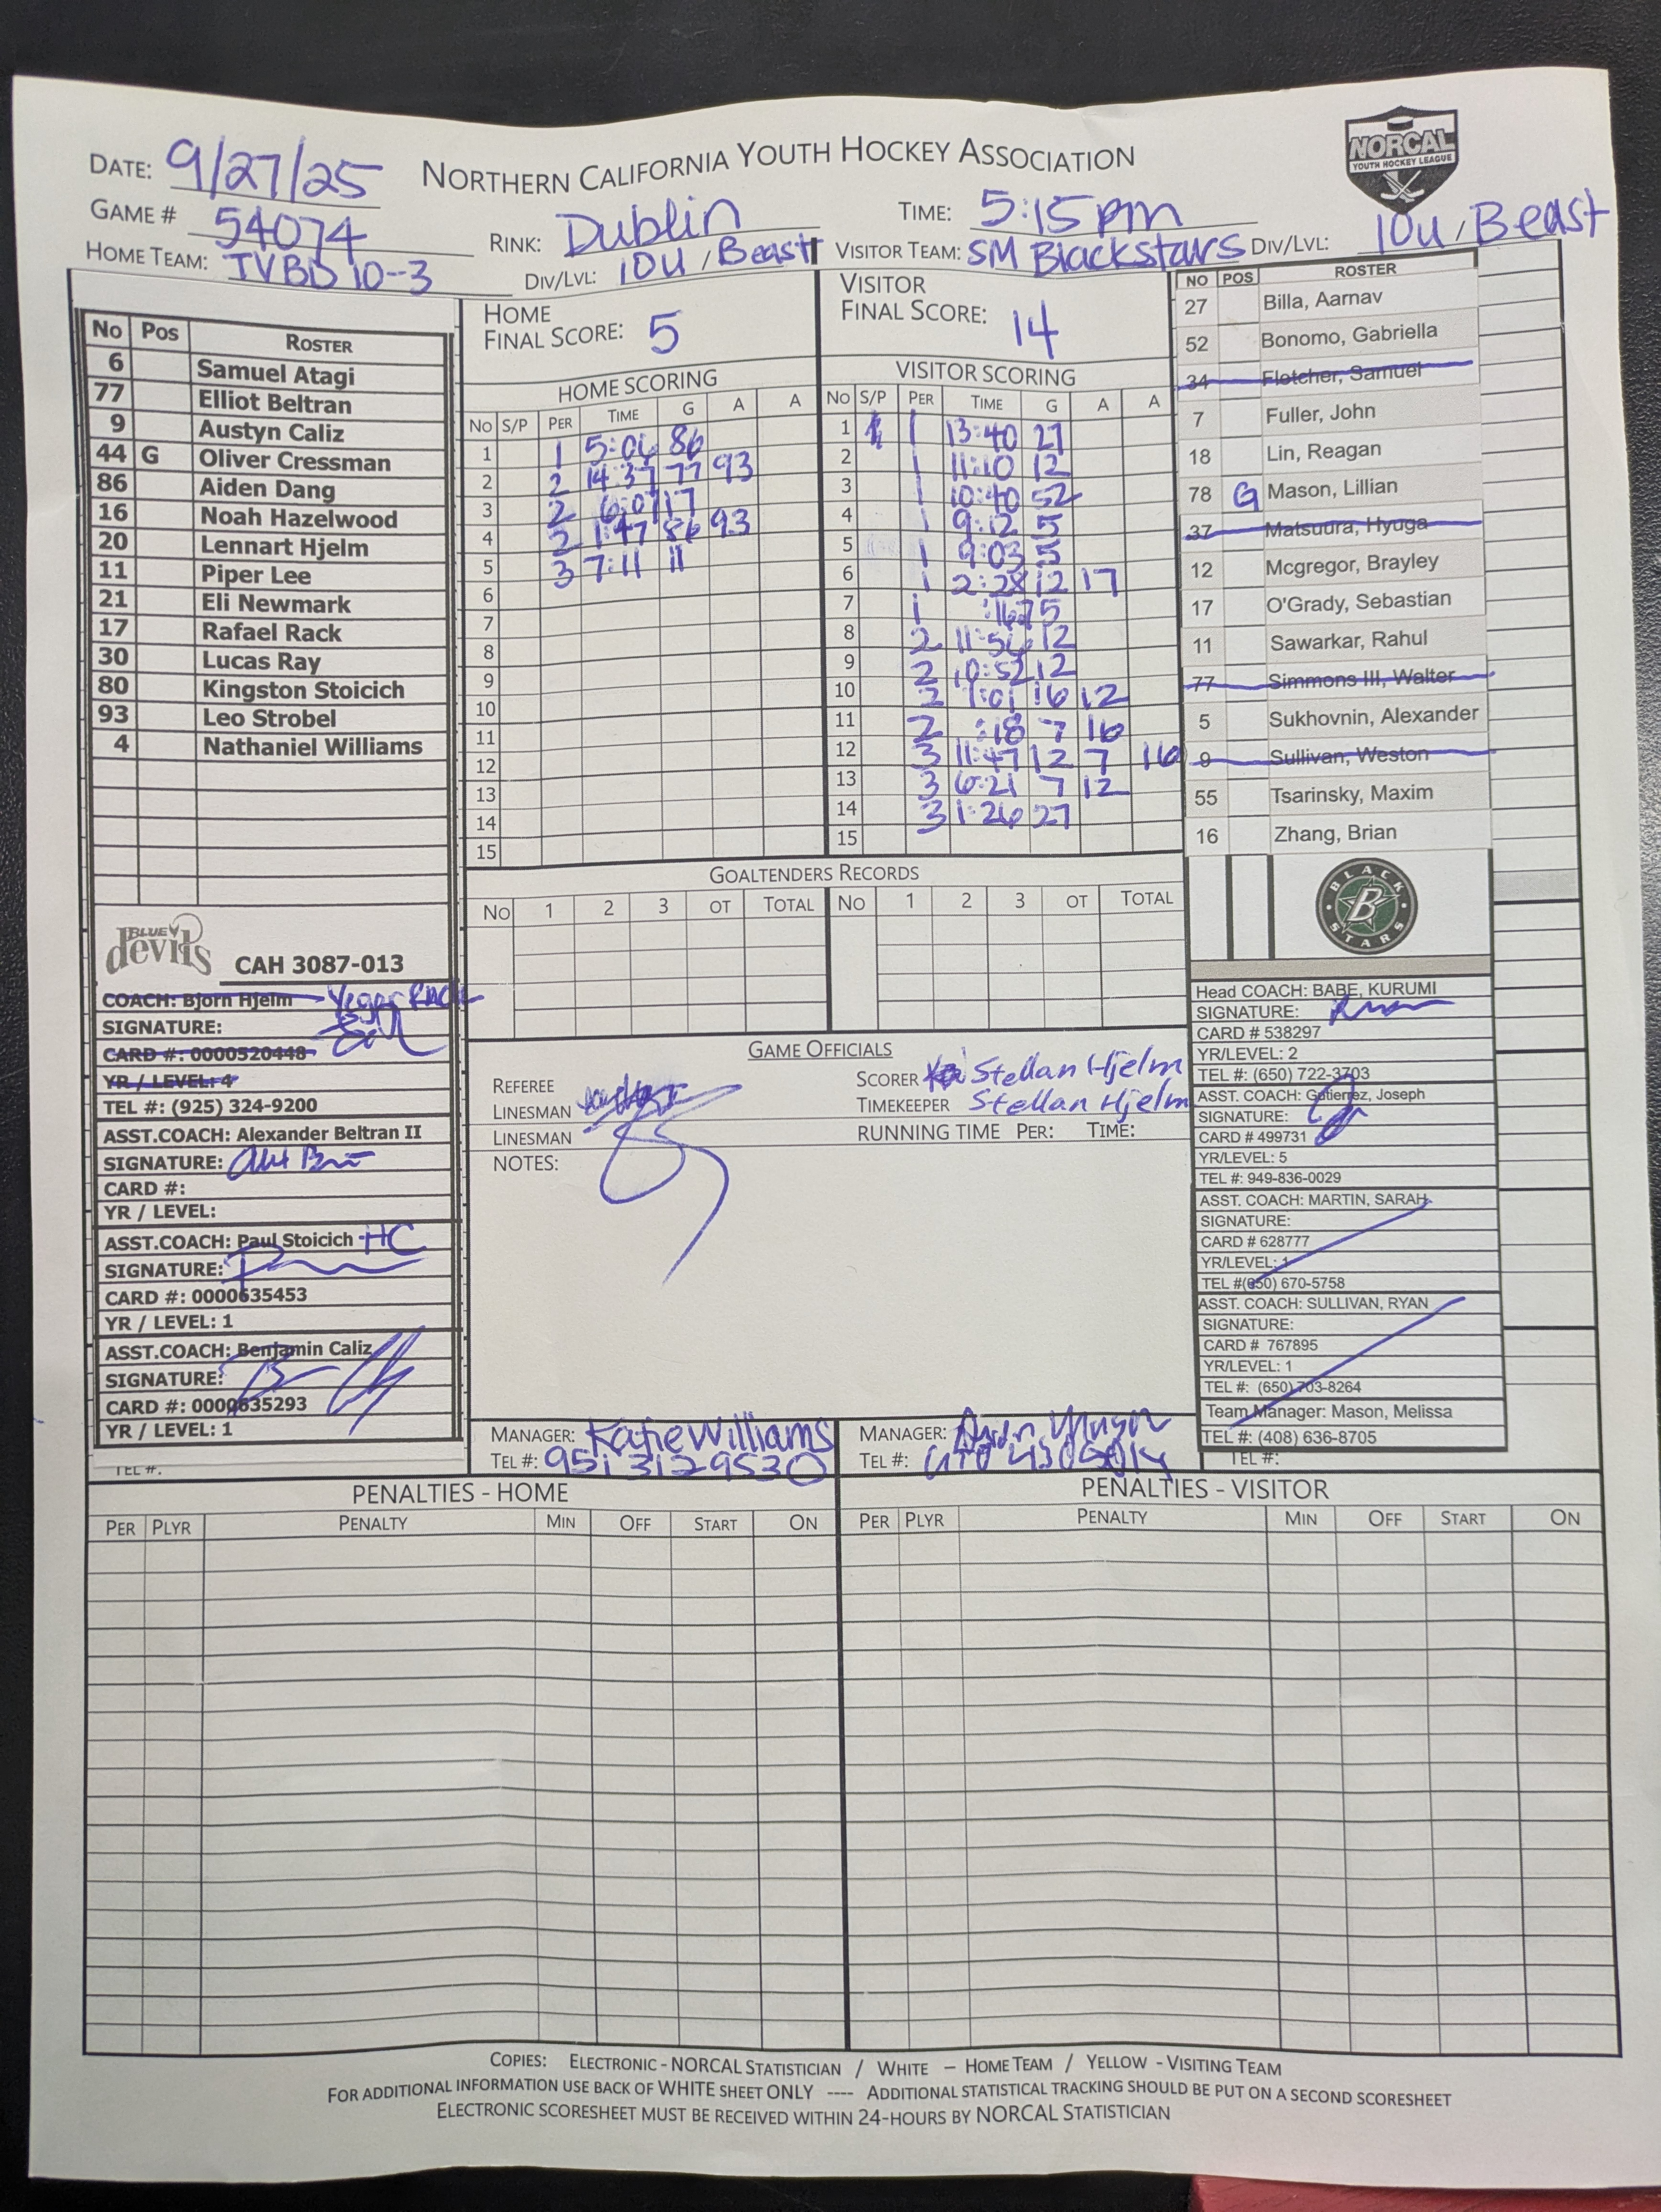 DATE: 9/27/25 NORTHERN CALIFORNIA YOUTH HOCKEY ASSOCIATION
NORCAL
YOUTH HOCKEY LEAGUE
GAME # 54074 RINK: Dublin TIME: 5:15pm
HOME TEAM: TVBD 10-3 DIV/LVL: 10U / Beast VISITOR TEAM: SM Blackstars DIV/LVL: 10U / Beast
No Pos ROSTER
6 Samuel Atagi
77 Elliot Beltran
9 Austyn Caliz
44 G Oliver Cressman
86 Aiden Dang
16 Noah Hazelwood
20 Lennart Hjelm
11 Piper Lee
21 Eli Newmark
17 Rafael Rack
30 Lucas Ray
80 Kingston Stoicich
93 Leo Strobel
4 Nathaniel Williams
BLUE devils
CAH 3087-013
COACH: Bjorn Hjelm
SIGNATURE:
CARD #: 0000520448
YR / LEVEL: 4
TEL #: (925) 324-9200
ASST.COACH: Alexander Beltran II
SIGNATURE:
CARD #:
YR / LEVEL:
ASST.COACH: Paul Stoicich HC
SIGNATURE:
CARD #: 0000635453
YR / LEVEL: 1
ASST.COACH: Benjamin Caliz
SIGNATURE:
CARD #: 0000635293
YR / LEVEL: 1
TEL #:
HOME
FINAL SCORE: 5
HOME SCORING
No S/P PER TIME G A A
1 1 5:06 86
2 2 14:37 77 93
3 2 6:07 17
4 2 1:47 86 93
5 3 7:11 11
6
7
8
9
10
11
12
13
14
15
VISITOR
FINAL SCORE: 14
VISITOR SCORING
No S/P PER TIME G A A
1 1 13:40 27
2 1 11:10 12
3 1 10:40 52
4 1 9:12 5
5 1 9:03 5
6 1 2:28 12 17
7 1 5
8 2 11:56 12
9 2 10:52 12
10 2 1:01 16 12
11 2 :18 7 16
12 3 11:47 12 7 16
13 3 6:21 7 12
14 3 1:26 27
15
GOALTENDERS RECORDS
No 1 2 3 OT TOTAL No 1 2 3 OT TOTAL
GAME OFFICIALS
REFEREE
LINESMAN
LINESMAN
NOTES:
SCORER Stellan Hjelm
TIMEKEEPER Stellan Hjelm
RUNNING TIME PER: TIME:
MANAGER: Katie Williams
TEL #: 951 312 9530
MANAGER:
TEL #:
NO POS ROSTER
27 Billa, Aarnav
52 Bonomo, Gabriella
34 Fletcher, Samuel
7 Fuller, John
18 Lin, Reagan
78 G Mason, Lillian
37 Matsuura, Hyuga
12 Mcgregor, Brayley
17 O'Grady, Sebastian
11 Sawarkar, Rahul
77 Simmons III, Walter
5 Sukhovnin, Alexander
9 Sullivan, Weston
55 Tsarinsky, Maxim
16 Zhang, Brian
BLACK
B
STARS
Head COACH: BABE, KURUMI
SIGNATURE:
CARD # 538297
YR/LEVEL: 2
TEL #: (650) 722-3703
ASST. COACH: Gutierrez, Joseph
SIGNATURE:
CARD # 499731
YR/LEVEL: 5
TEL #: 949-836-0029
ASST. COACH: MARTIN, SARAH
SIGNATURE:
CARD # 628777
YR/LEVEL: 1
TEL #(650) 670-5758
ASST. COACH: SULLIVAN, RYAN
SIGNATURE:
CARD # 767895
YR/LEVEL: 1
TEL #: (650) 703-8264
Team Manager: Mason, Melissa
TEL #: (408) 636-8705
TEL #:
PENALTIES - HOME
PER PLYR PENALTY MIN OFF START ON
PENALTIES - VISITOR
PER PLYR PENALTY MIN OFF START ON
COPIES: ELECTRONIC - NORCAL STATISTICIAN / WHITE – HOME TEAM / YELLOW - VISITING TEAM
FOR ADDITIONAL INFORMATION USE BACK OF WHITE SHEET ONLY ---- ADDITIONAL STATISTICAL TRACKING SHOULD BE PUT ON A SECOND SCORESHEET
ELECTRONIC SCORESHEET MUST BE RECEIVED WITHIN 24-HOURS BY NORCAL STATISTICIAN